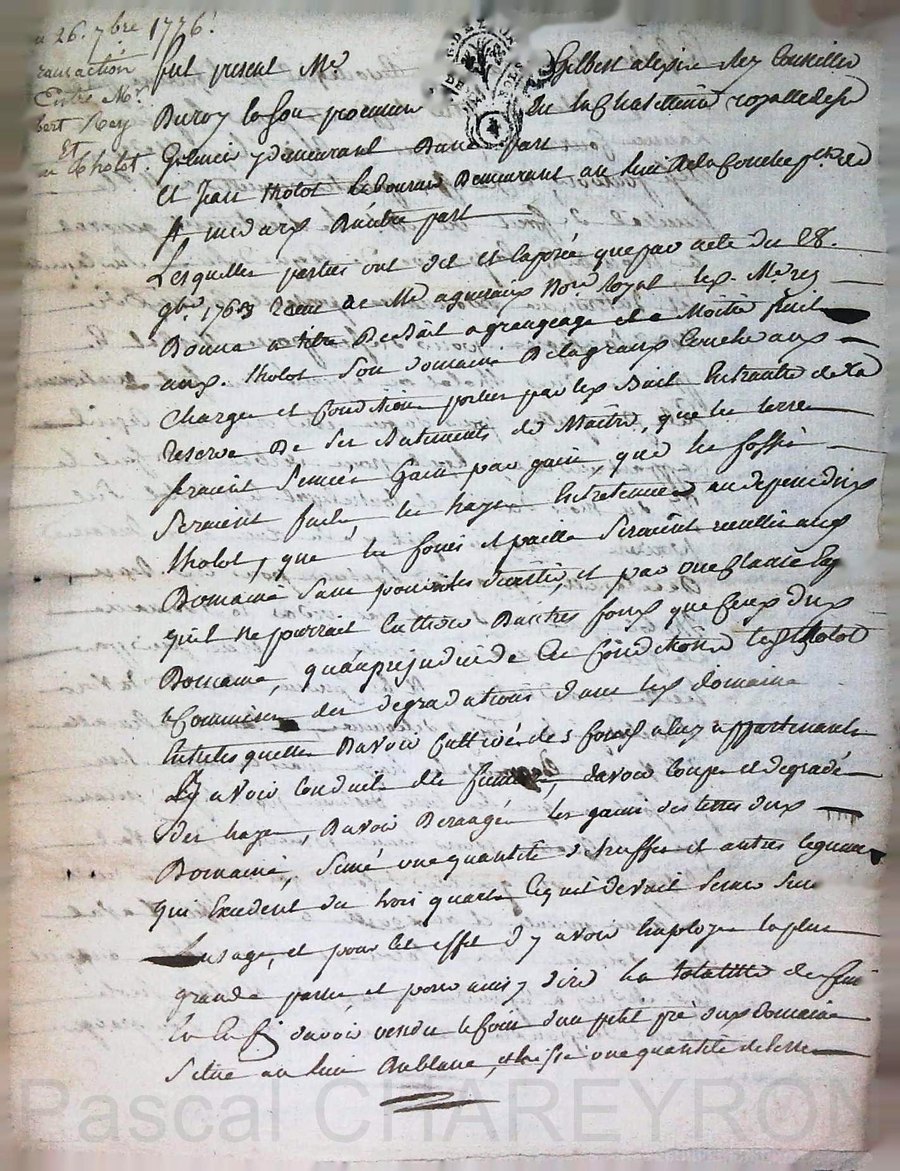 26. 7bre 1776
transaction
Entre Mr
bert Rey
Et
Tholot.
fut present Mr Gilbert alexise Rey Conseiller
Du roy Et son procureur En la Chatellenie royalle de
demeurant Dune part
Et Jean tholot Laboureur Demeurant au lieu de la Couche psse de
St medard Dautre part
Lesquelles parties ont dit et Exposé que par acte du 28.
9bre 1763 recu de Me aguiraux Nore royal led. Mr rey
Donna a titre De Bail a grangeage et a Moitié fruit
aud. tholot Son domaine De la grand Couche aux
Charges et Conditions portées par led Bail Entrautre de la
reserve De Ses Batiments de Maitre, que les terres
Seraient Semées gain par gain, que les fossés
Seraient faits, les hayes Entretenues au depend dud
tholot, que les foins et pailles Seraient
Domaine Sans pouvoir , et par une Clause
quil ne pourrait Cultiver Dautres fonds que Ceux dud
Domaine, quau prejudice de Ces Conditions led tholot
a Commis des degradations dans led domaine
Entre lesquelles Davoir Cultivé des fonds a luy appartenants
Dy avoir Conduit des , davoir Coupé et degradé
des hayes, Davoir Derangé les gains des terres dud
Domaine, Semé une quantité de truffes et autres legumes
qui Excedent des trois quarts Ce quil devait Semer Sur
Lusage, et pour Cet effet dy avoir Employé la plus
grande partie et pour ainsy dire la totalitté de
En Enfin davoir vendu le foin dun petit pré dud domaine
Situé au lieu , et laissé une quantité de terre
Pascal CHAREYRON